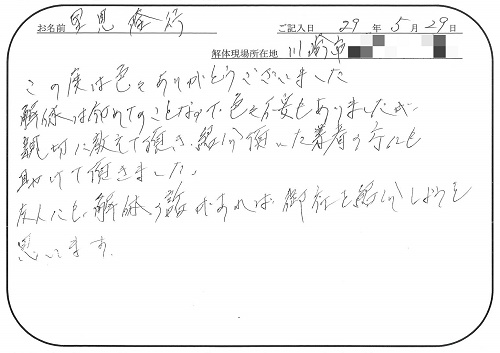 お名前 ご記入日 29 年 5 月 29 日
解体現場所在地 川崎市
この度は色々ありがとうございました
解体は初めてのことなので、色々不安もありましたが
親切に教えて頂き、紹介頂いた業者の方にも
助けて頂きました。
友人にも、解体の話があれば御社を紹介しようと
思います。